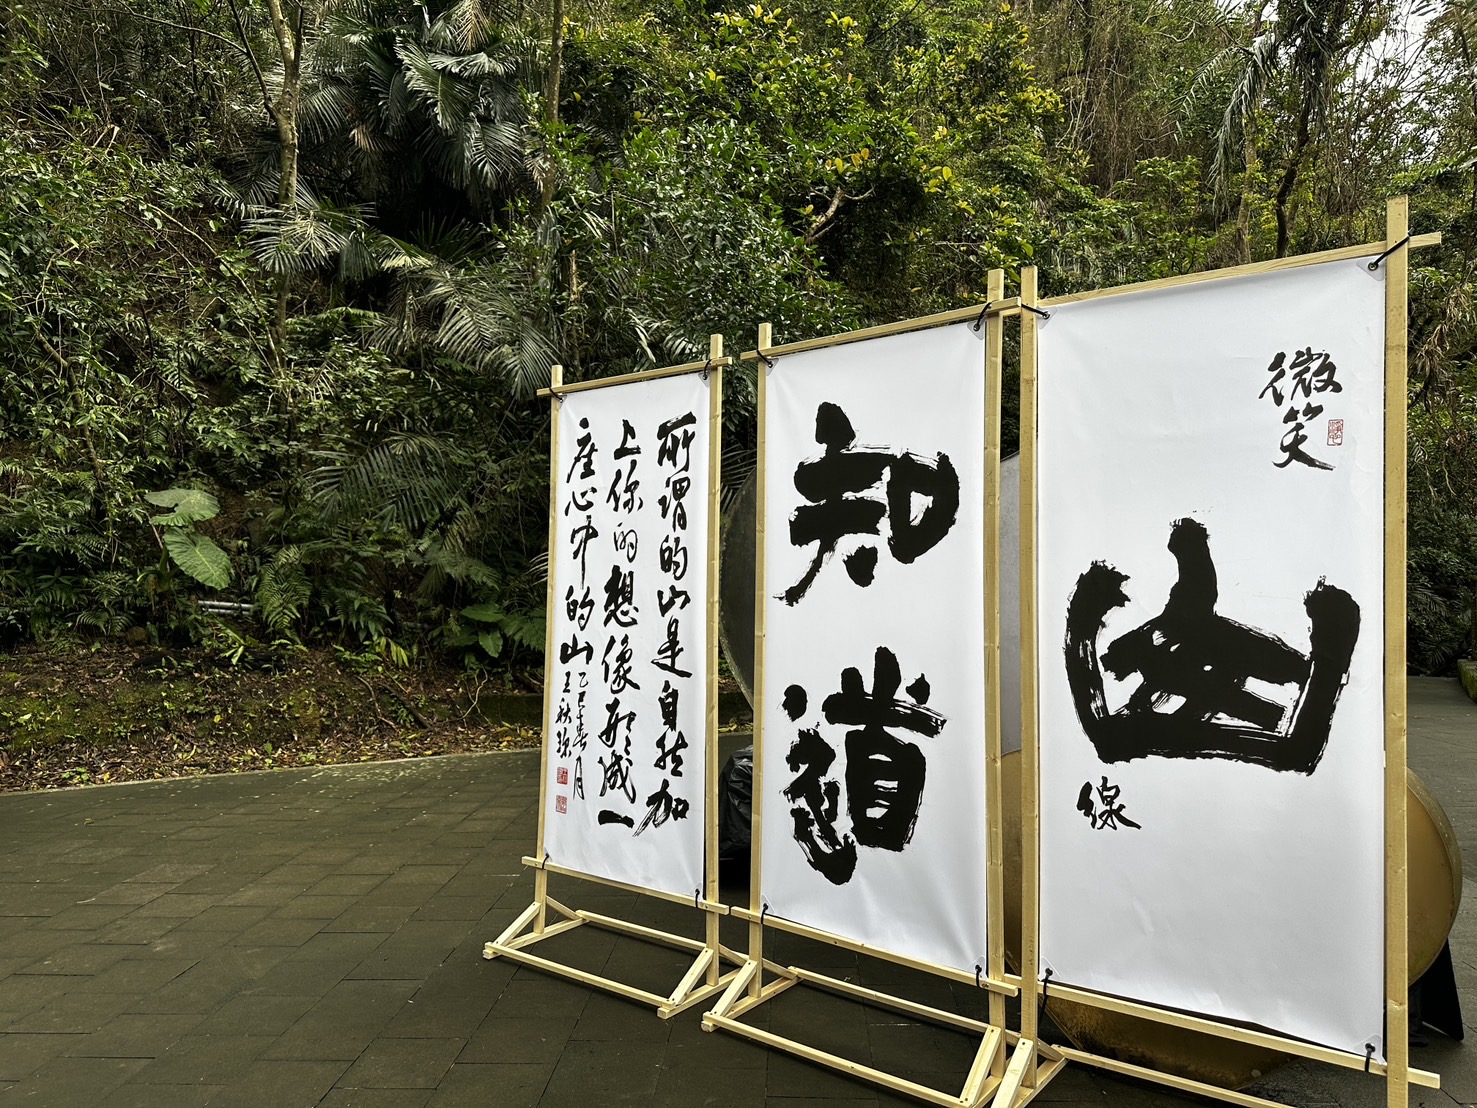 微笑
山
線
知
道
所謂的山是自然加
上你的想像而成一
座心中的山
乙巳春月
王秋